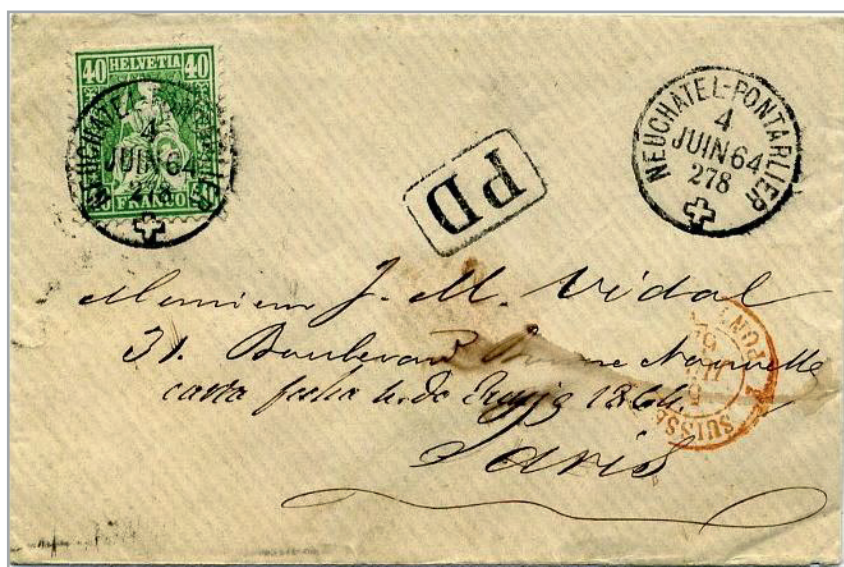 40 HELVETIA 40
FRANCO
NEUCHATEL-PONTARLIER
4
JUIN 64
278
PD
NEUCHATEL-PONTARLIER
4
JUIN 64
278
Monsieur J. M. Vidal
31. Boulevard Bonne Nouvelle
carta fecha 4. de Junio 1864.
Paris
SUISSE
PONT